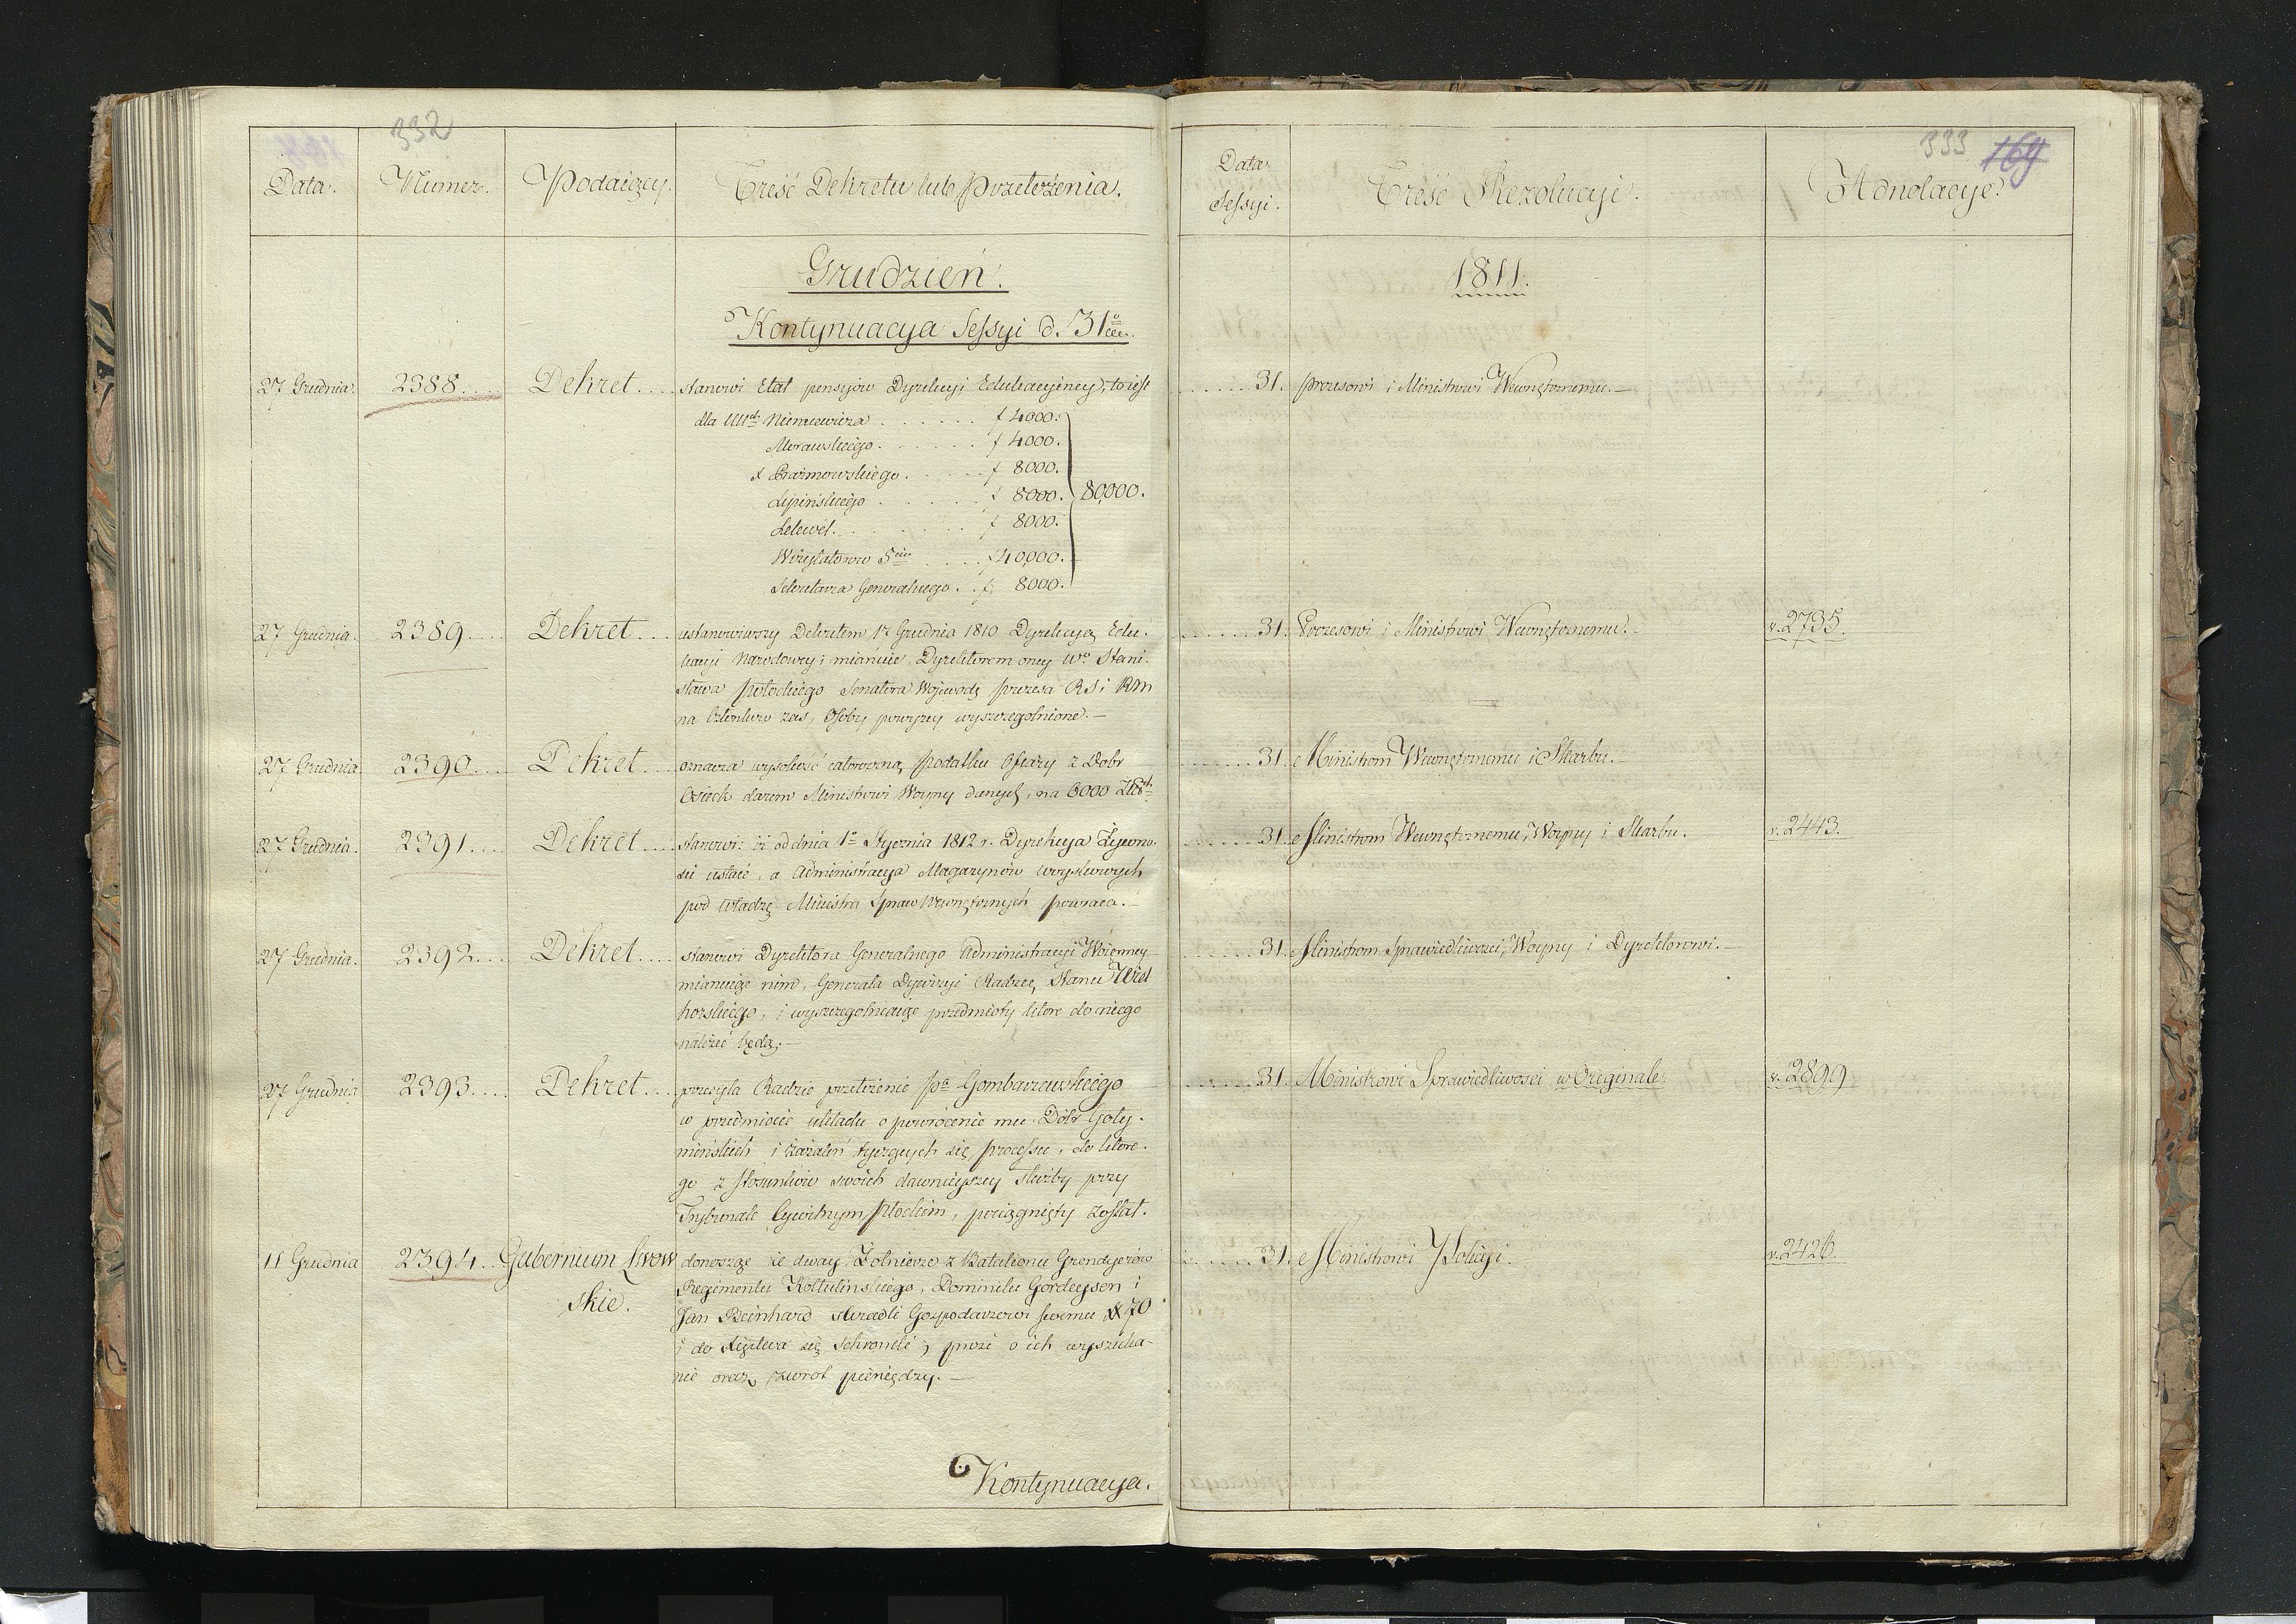 332
Data.
Numer.
Podaiący.
Treść Dekretu lub Przełożenia.
Grudzień.
Kontynuacya Sessyi d. 31º
27 Grudnia. 2388.... Dekret.... stanowi Etat pensyiów Dyrekcyi Edukacyiney, to iest
dla Niemcewicza ....... f 4000.
Morawskiego ....... f 4000.
X Prażmowskiego ....... f 8000.
Lipińskiego ....... f 8000. 80,000.
Lelewel ....... f 8000.
Wizytatorów 5ciu ..... f 40,000.
Sekretarza Generalnego .. f. 8000.
27 Grudnia. 2389.... Dekret.... ustanowiwszy Dekretem 17 Grudnia 1810 Dyrekcyą Edu-
kacyi Narodowey, mianuie Dyrektorem oney Wo Stani-
sława Potockiego Senatora Wojewodę Prezesa RS i RM
na Członków zaś, Osoby powyżey wyszczegolnione.—
27 Grudnia. 2390.... Dekret.... oznacza wysokość całoroczną Podatku Ofiary z Dobr
Osieck darem Ministrowi Woyny danych, na 6000
27 Grudnia. 2391.... Dekret.... stanowi: iż od dnia 1º Stycznia 1812 r. Dyrekcya Żywno-
ści ustaie, a Administracya Magazynów woyskowych
pod władzę Ministra Spraw Wewnętrznych powraca.—
27 Grudnia. 2392... Dekret.... stanowi Dyrektora Generalnego Administracyi Woienney
mianuiąc nim, Generała Dywizyi Radzcę Stanu Wiel
horskiego, i wyszczegolniaiąc przedmioty które do niego
należeć będą.—
27 Grudnia 2393.... Dekret.... przesyła Radzie przełożenie Pa Gombarzewskiego
w przedmiocie układu o powrócenie mu Dóbr Goły-
mińskich i zażaleń tyczących się processu, do które-
go z stosunków swoich dawnieyszey służby przy
Trybunale Cywilnym Płockim, pociągnięty został.
11 Grudnia 2394.. Gubernium Lwow donosząc że dway Żołnierze z Batalionu Grenadyerów
skie. Regimentu Kottulinskiego, Dominik Gordeysen i
Jan Reinhard skradli Gospodarzowi swemu # 70
i do Xięztwa się schronili; prosi o ich wyszuka-
nie oraz zwrot pieniędzy.—
Kontynuacya.
333 169
Data Sessyi.
Treść Rezolucyi.
Adnotacye.
1811.
......31. Prezesowi i Ministrowi Wewnętrznemu.—
......31. Prezesowi i Ministrowi Wewnętrznemu.— v. 2735.
......31. Ministrom Wewnętrznemu i Skarbu.—
......31. Ministrom Wewnętrznemu, Woyny i Skarbu. v. 2443.
......31. Ministrom Sprawiedliwości, Woyny i Dyrektorowi.—
......31. Ministrowi Sprawiedliwości w Originale. v. 2899
......31. Ministrowi Policyi. v. 2426.